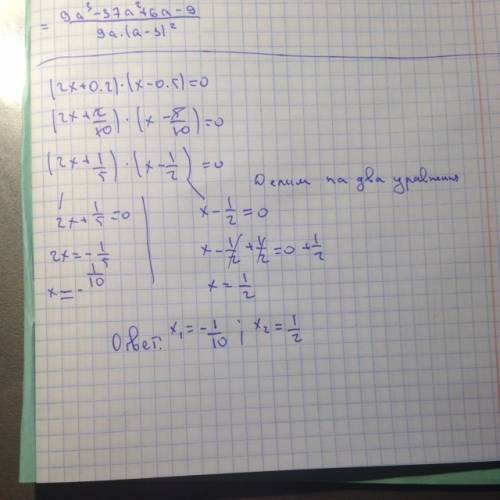 = (9a³-37a²+6a-9)/(9a·(a-3)²)
(2x+0.2)·(x-0.5)=0
(2x+2/10)·(x-5/10)=0
(2x+1/5)·(x-1/2)=0
Делим на два уравнения
2x+1/5=0
2x=-1/5
x=-1/10
x-1/2=0
x-1/2+1/2=0+1/2
x=1/2
Ответ: x₁=-1/10; x₂=1/2